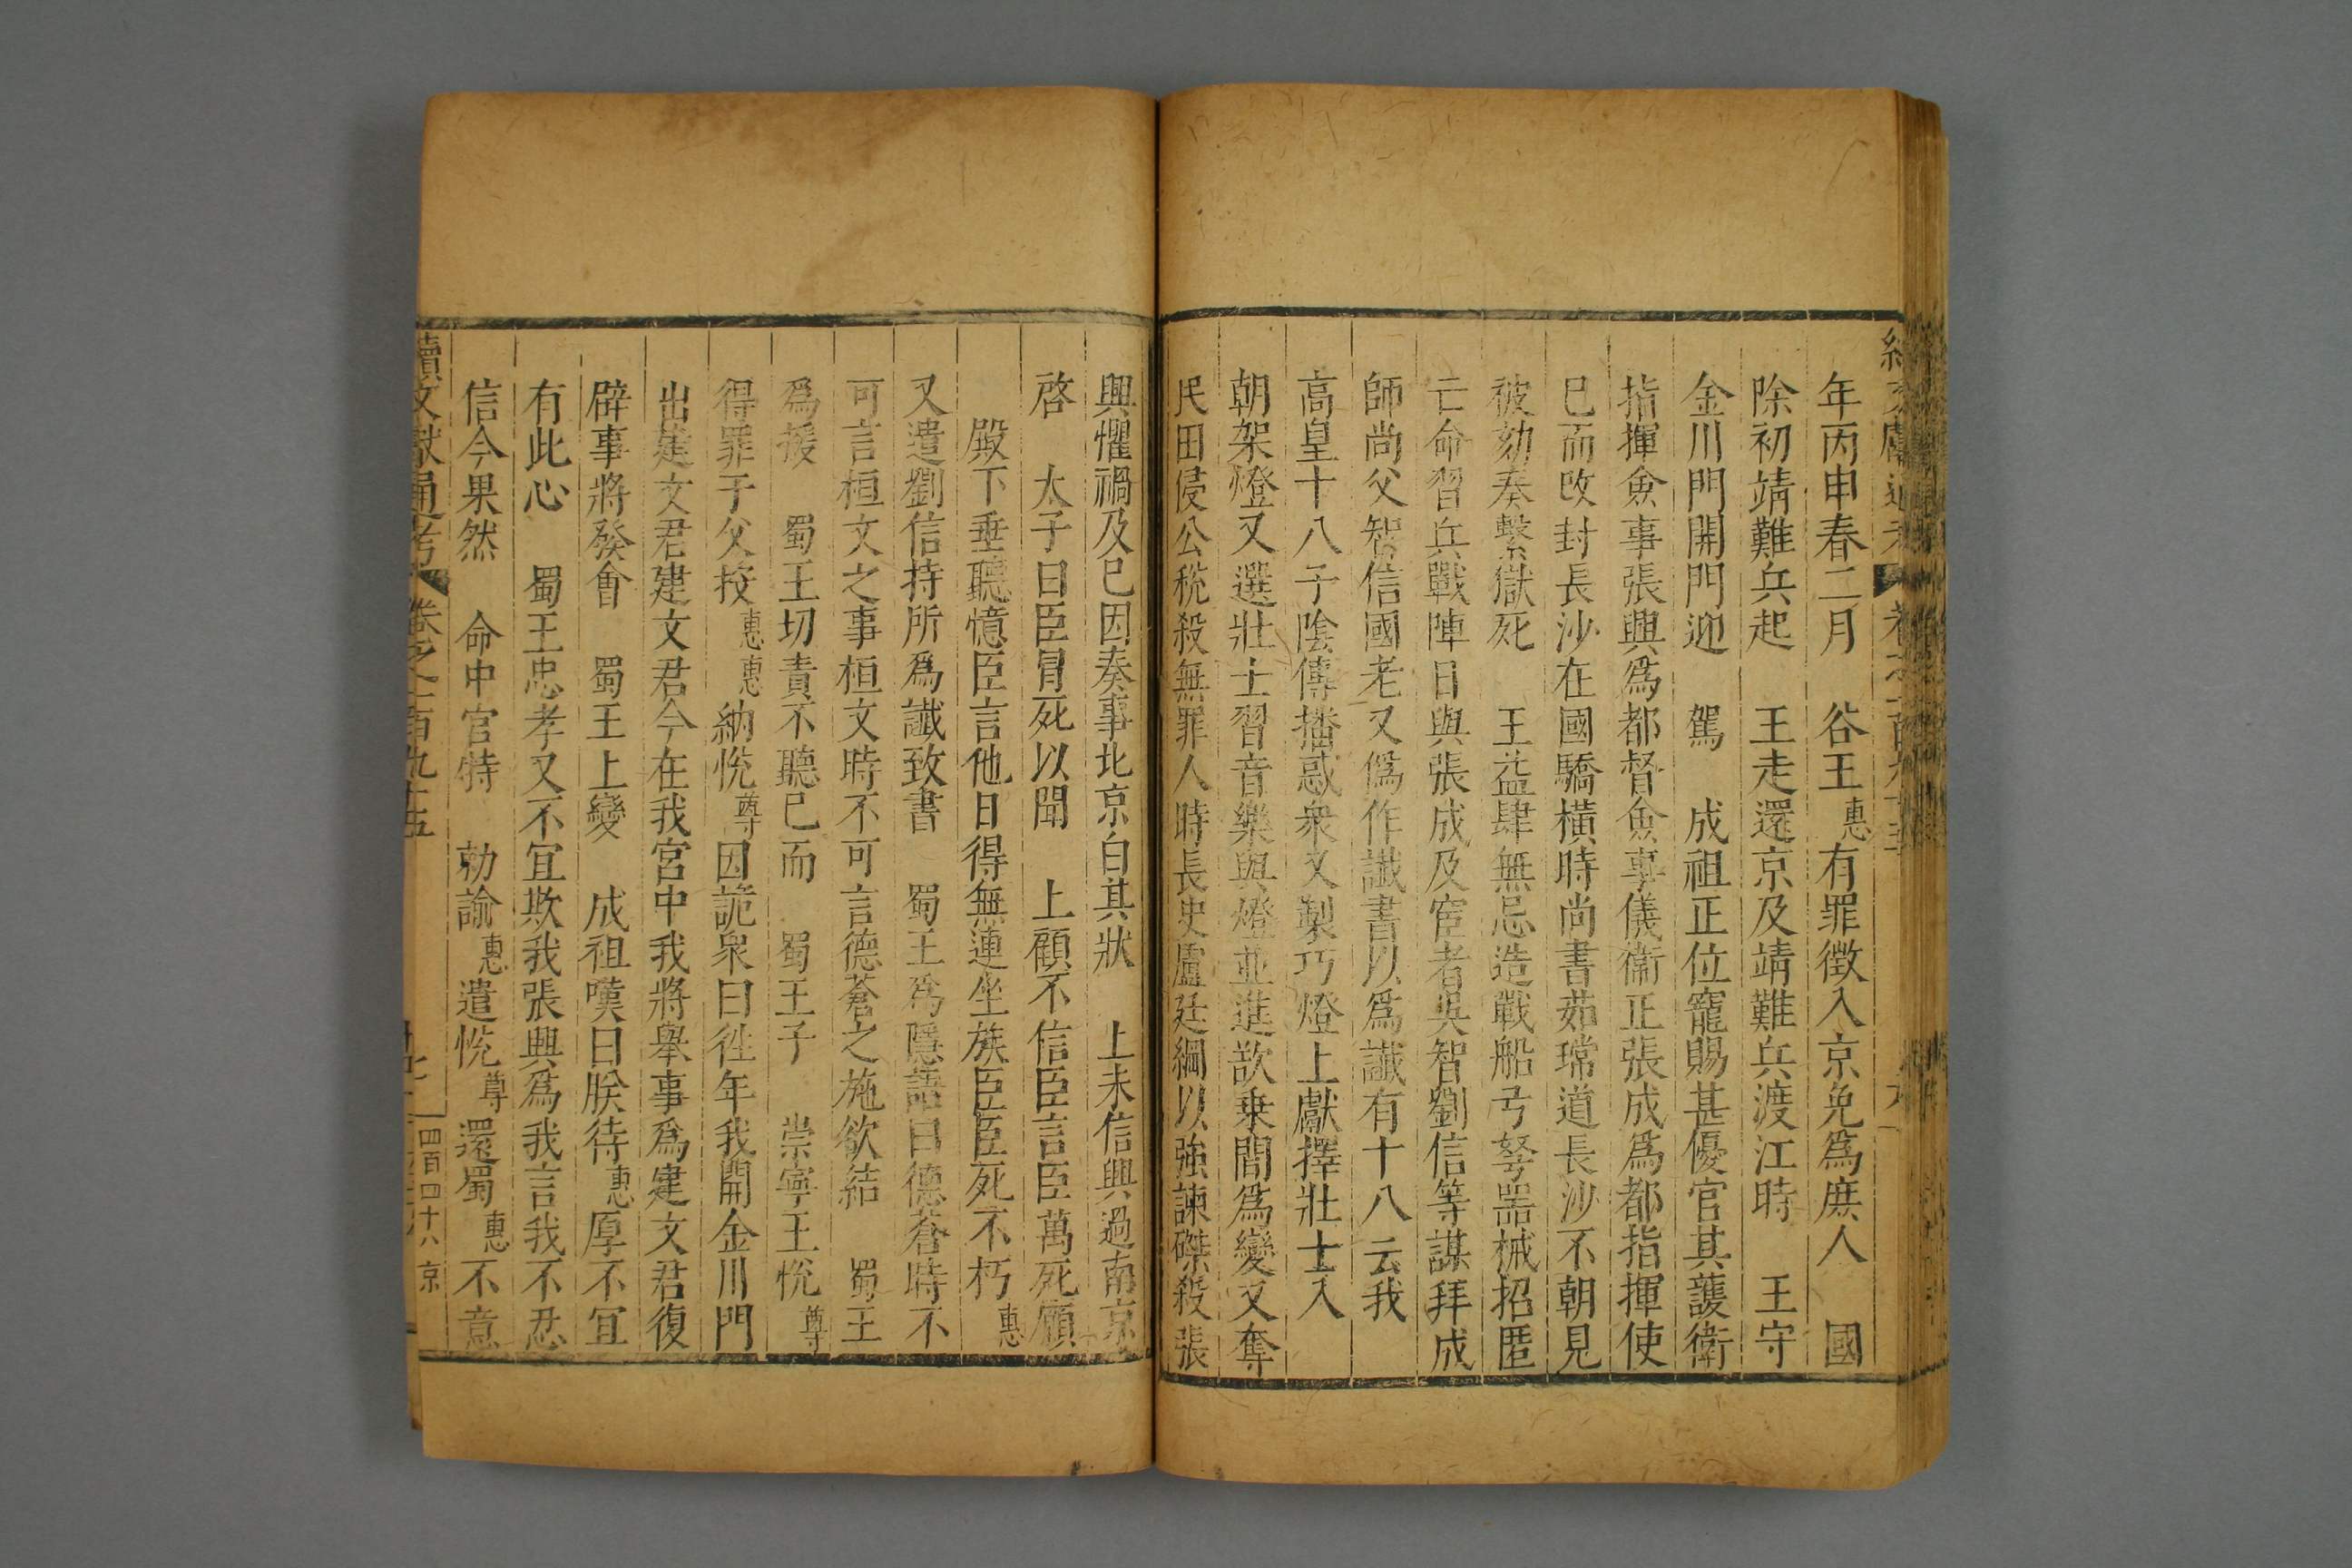 年丙申春二月　谷王惠有罪徴入京免爲庶人　國
除初靖難兵起　王走還京及靖難兵渡江時　王守
金川門開門迎　駕　成祖正位寵賜甚優官其護衛
指揮僉事張興爲都督僉事儀衞正張成爲都指揮使
已而改封長沙在國驕橫時尚書茹瑺道長沙不朝見
被劾奏繫獄死　王益肆無忌造戰船弓弩器械招匿
亡命習兵戰陣日與張成及宦者吳智劉信等謀拜成
師尚父智信國老又僞作讖書以爲讖有十八云我
高皇十八子陰傳播惑衆又製巧燈上獻擇壯士入
朝架燈又選壯士習音樂與燈並進欲乗間爲變又奪
民田侵公稅殺無罪人時長史盧廷綱以強諫磔殺張
興懼禍及已因奏事北京白其狀　上未信興過南京
啓　太子曰臣冐死以聞　上顧不信臣言臣萬死願
殿下垂聽憶臣言他日得無連坐族臣臣死不朽惠
又遣劉信持所爲讖致書　蜀王爲隱語曰德蒼時不
可言桓文之事桓文時不可言德蒼之施欲結　蜀王
爲援　蜀王切責不聽已而　蜀王子　崇寧王悅尊
得罪于父投惠惠納悅尊因詭衆曰徃年我開金川門
出建文君建文君今在我宮中我將舉事爲建文君復
辟事將發會　蜀王上變　成祖嘆曰朕待惠厚不宜
有此心　蜀王忠孝又不宜欺我張興爲我言我不忍
信今果然　命中官特　勑諭惠遣悅尊還蜀惠不意
續文獻通考　卷之一百九十五
四百四十八　京